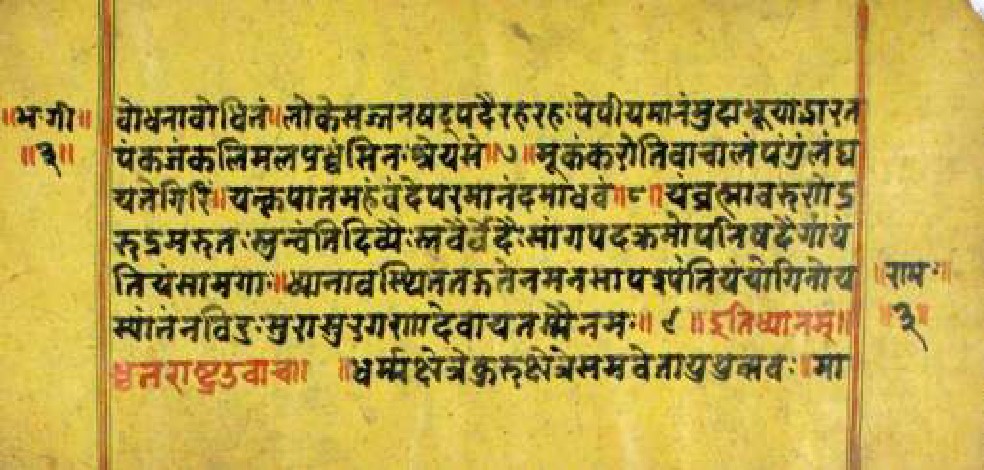 ॥भ॰गी॥
॥३॥
वोधनावोधितं॥लोकेसज्जनषट्पदैरहरहःपेपीयमानंमुदाभूयाद्भारत
पंकजंकलिमलप्रध्वंसिनःश्रेयसे॥७॥मूकंकरोतिवाचालंपंगुंलंघ
यतेगिरिं॥यत्कृपातमहंवंदेपरमानंदमाधवं॥८॥यंब्रह्मावरुणेंद्र
रुद्रमरुतःस्तुन्वंतिदिव्यैःस्तवैर्वेदैःसांगपदक्रमोपनिषदैर्गायं
तियंसामगाः॥ध्यानावस्थिततद्गतेनमनसापश्यंतियंयोगिनोय
स्यांतंनविदुःसुरासुरगणादेवायतस्मैनमः॥९॥इतिध्यानम्॥
धृतराष्ट्रउवाच॥ ॥धर्म्मक्षेत्रेकुरुक्षेत्रेसमवेतायुयुत्सवः॥मा
॥राम॰॥
॥३॥